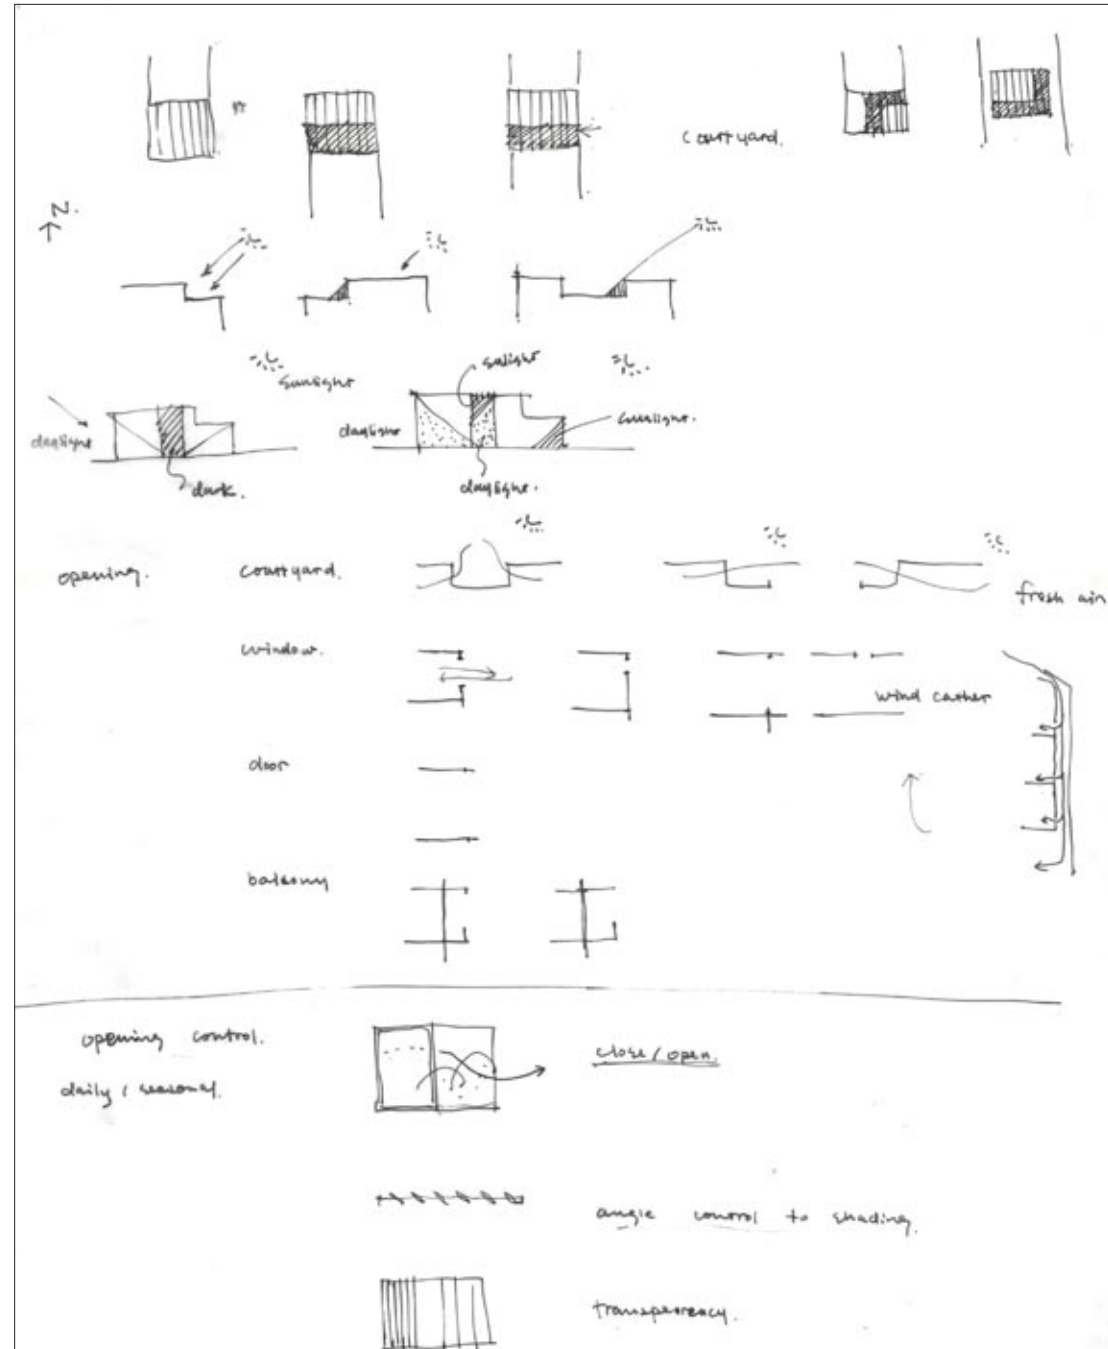 courtyard.
N.
sunlight
sunlight
daylight
daylight
sunlight.
dark.
daylight.
opening.
courtyard.
fresh air
window.
wind cather
door
balcony
opening control.
close/open.
daily / seasonal.
angle control to shading.
transperency.